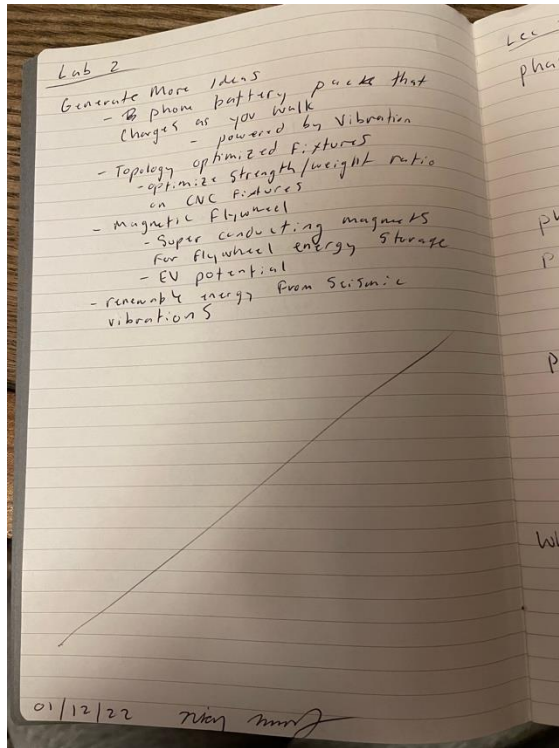 Lab 2
Generate More Ideas
- phone battery pack that
charges as you walk
- powered by vibration
- Topology optimized fixtures
- optimize strength/weight ratio
on CNC fixtures
- Magnetic flywheel
- Super conducting magnets
for flywheel energy storage
- EV potential
- renewable energy from seismic
vibrations
01/12/22
Lec
pha
ph
p
p
Wh